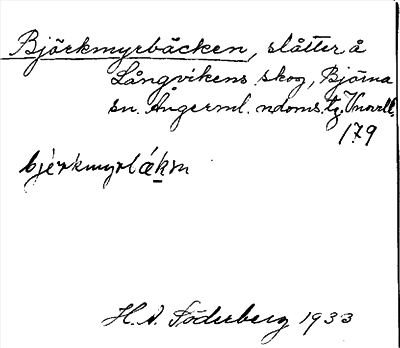 Björkmyrbäcken, slåtter å
Långvikens skog, Björna
sn. Ångerml. ndoms. tg.
179
bjérkmyrbákm
H. A. Söderberg 1933